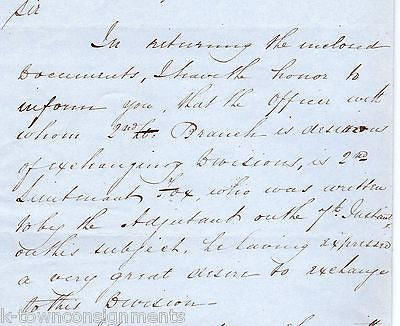 Sir
In returning the inclosed
Documents, I have the honor to
inform you, that the Officer with
whom 2nd Lt. Branch is desirous
of exchanging Divisions, is 2nd
Lieutenant Fox, who was written
to by the Adjutant on the 7th Instant,
on this subject, he having expressed
a very great desire to exchange
to this Division—
k-townconsignments